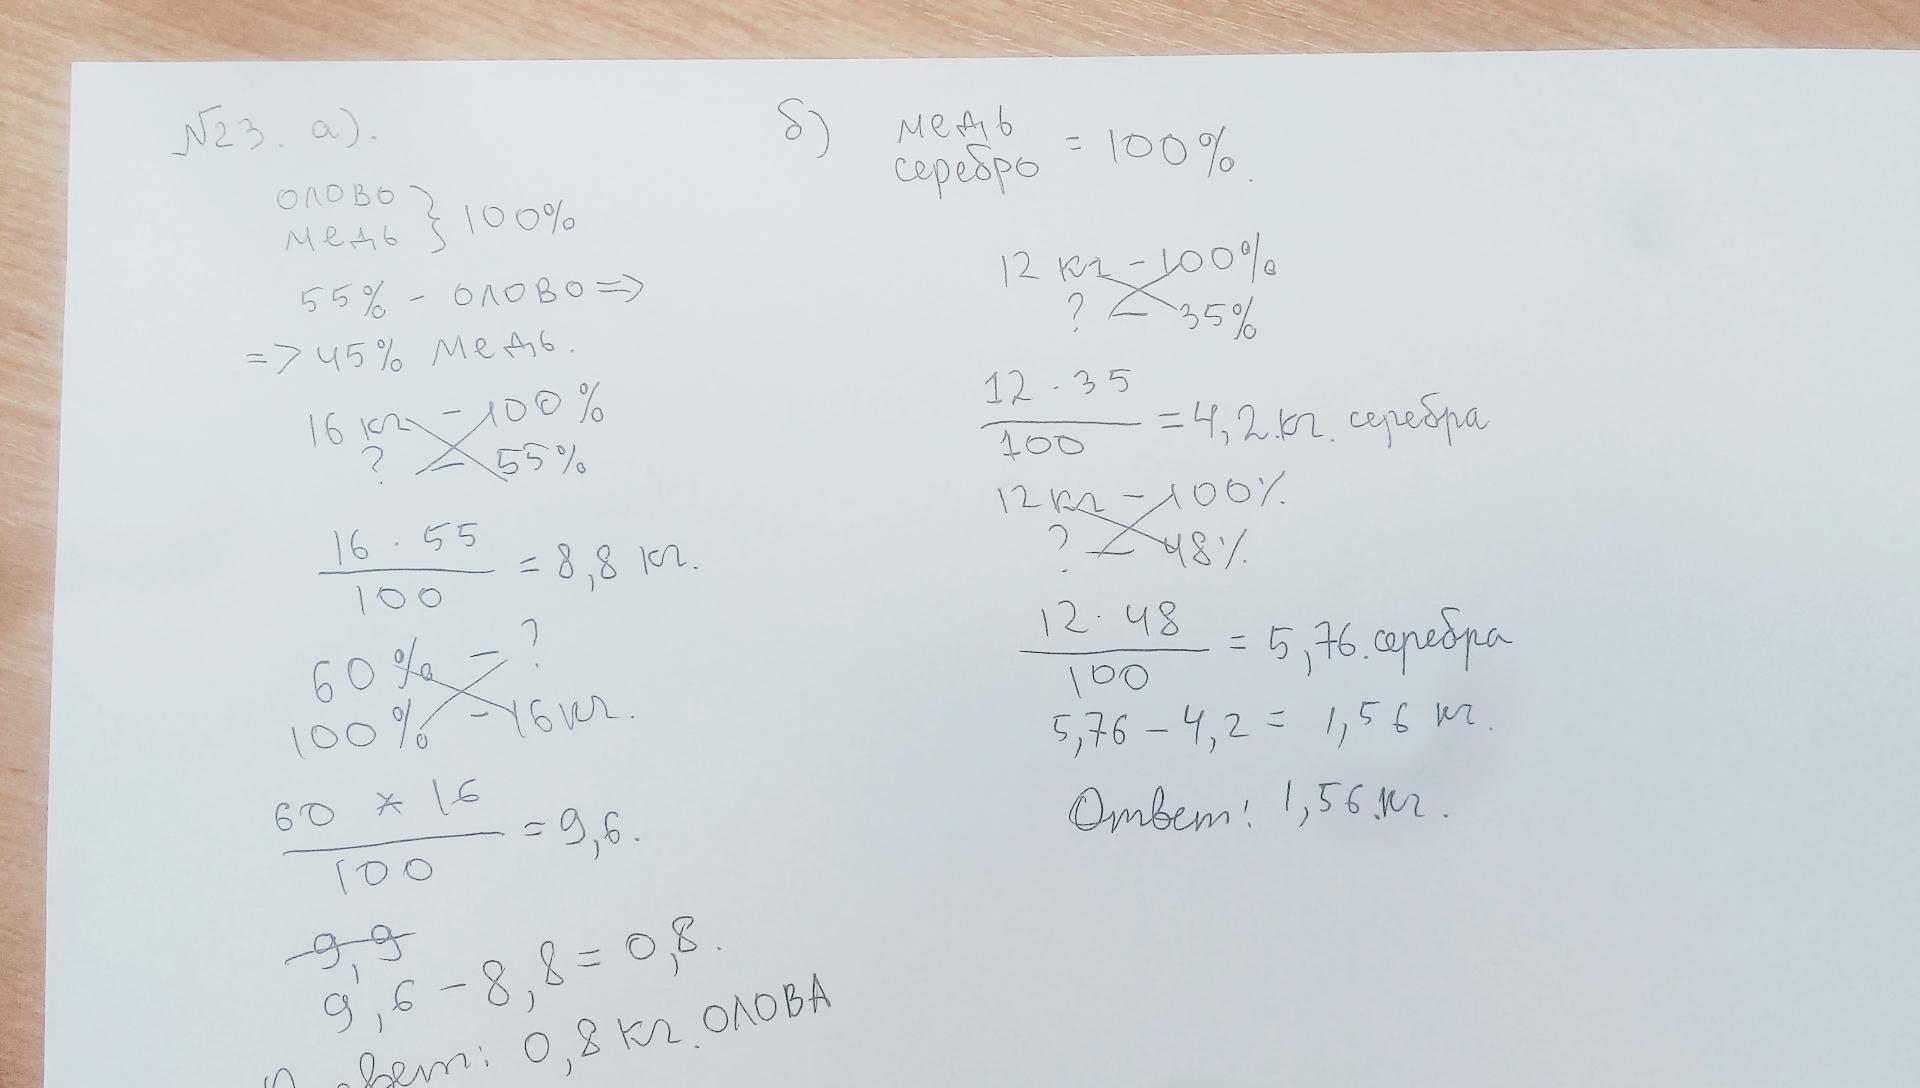 №23. а).
олово
медь } 100%
55% - олово =>
=> 45% медь.
16 кг - 100%
? - 55%
16 · 55
100
= 8,8 кг.
60% - ?
100% - 16 кг.
60 * 16
100
= 9,6.
9,9
9,6 - 8,8 = 0,8.
Ответ: 0,8 кг. ОЛОВА
б) медь
серебро = 100%.
12 кг - 100%
? - 35%
12 · 35
100
= 4,2 кг. серебра
12 кг - 100%
? - 48%
12 · 48
100
= 5,76. серебра
5,76 - 4,2 = 1,56 кг.
Ответ: 1,56 кг.